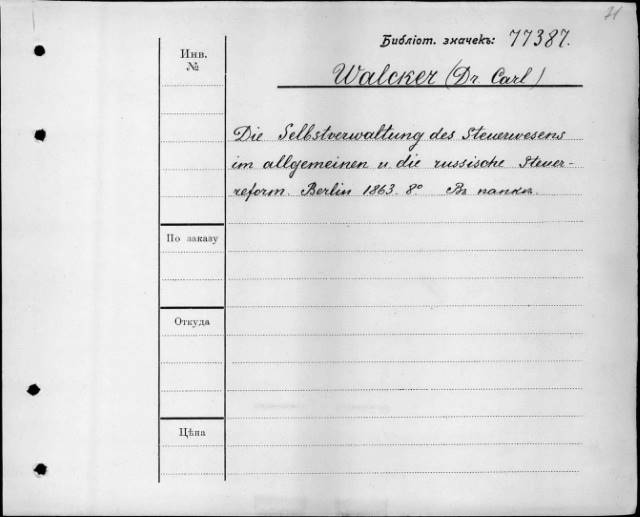 21
Библіот. значекъ: 77387.
Инв.
№
Walcker (Dr. Carl)
Die Selbstverwaltung des Steuerwesens
im allgemeinen u. die russische Steuer-
reform. Berlin 1863. 8° Въ папкѣ.
По заказу
Откуда
Цѣна